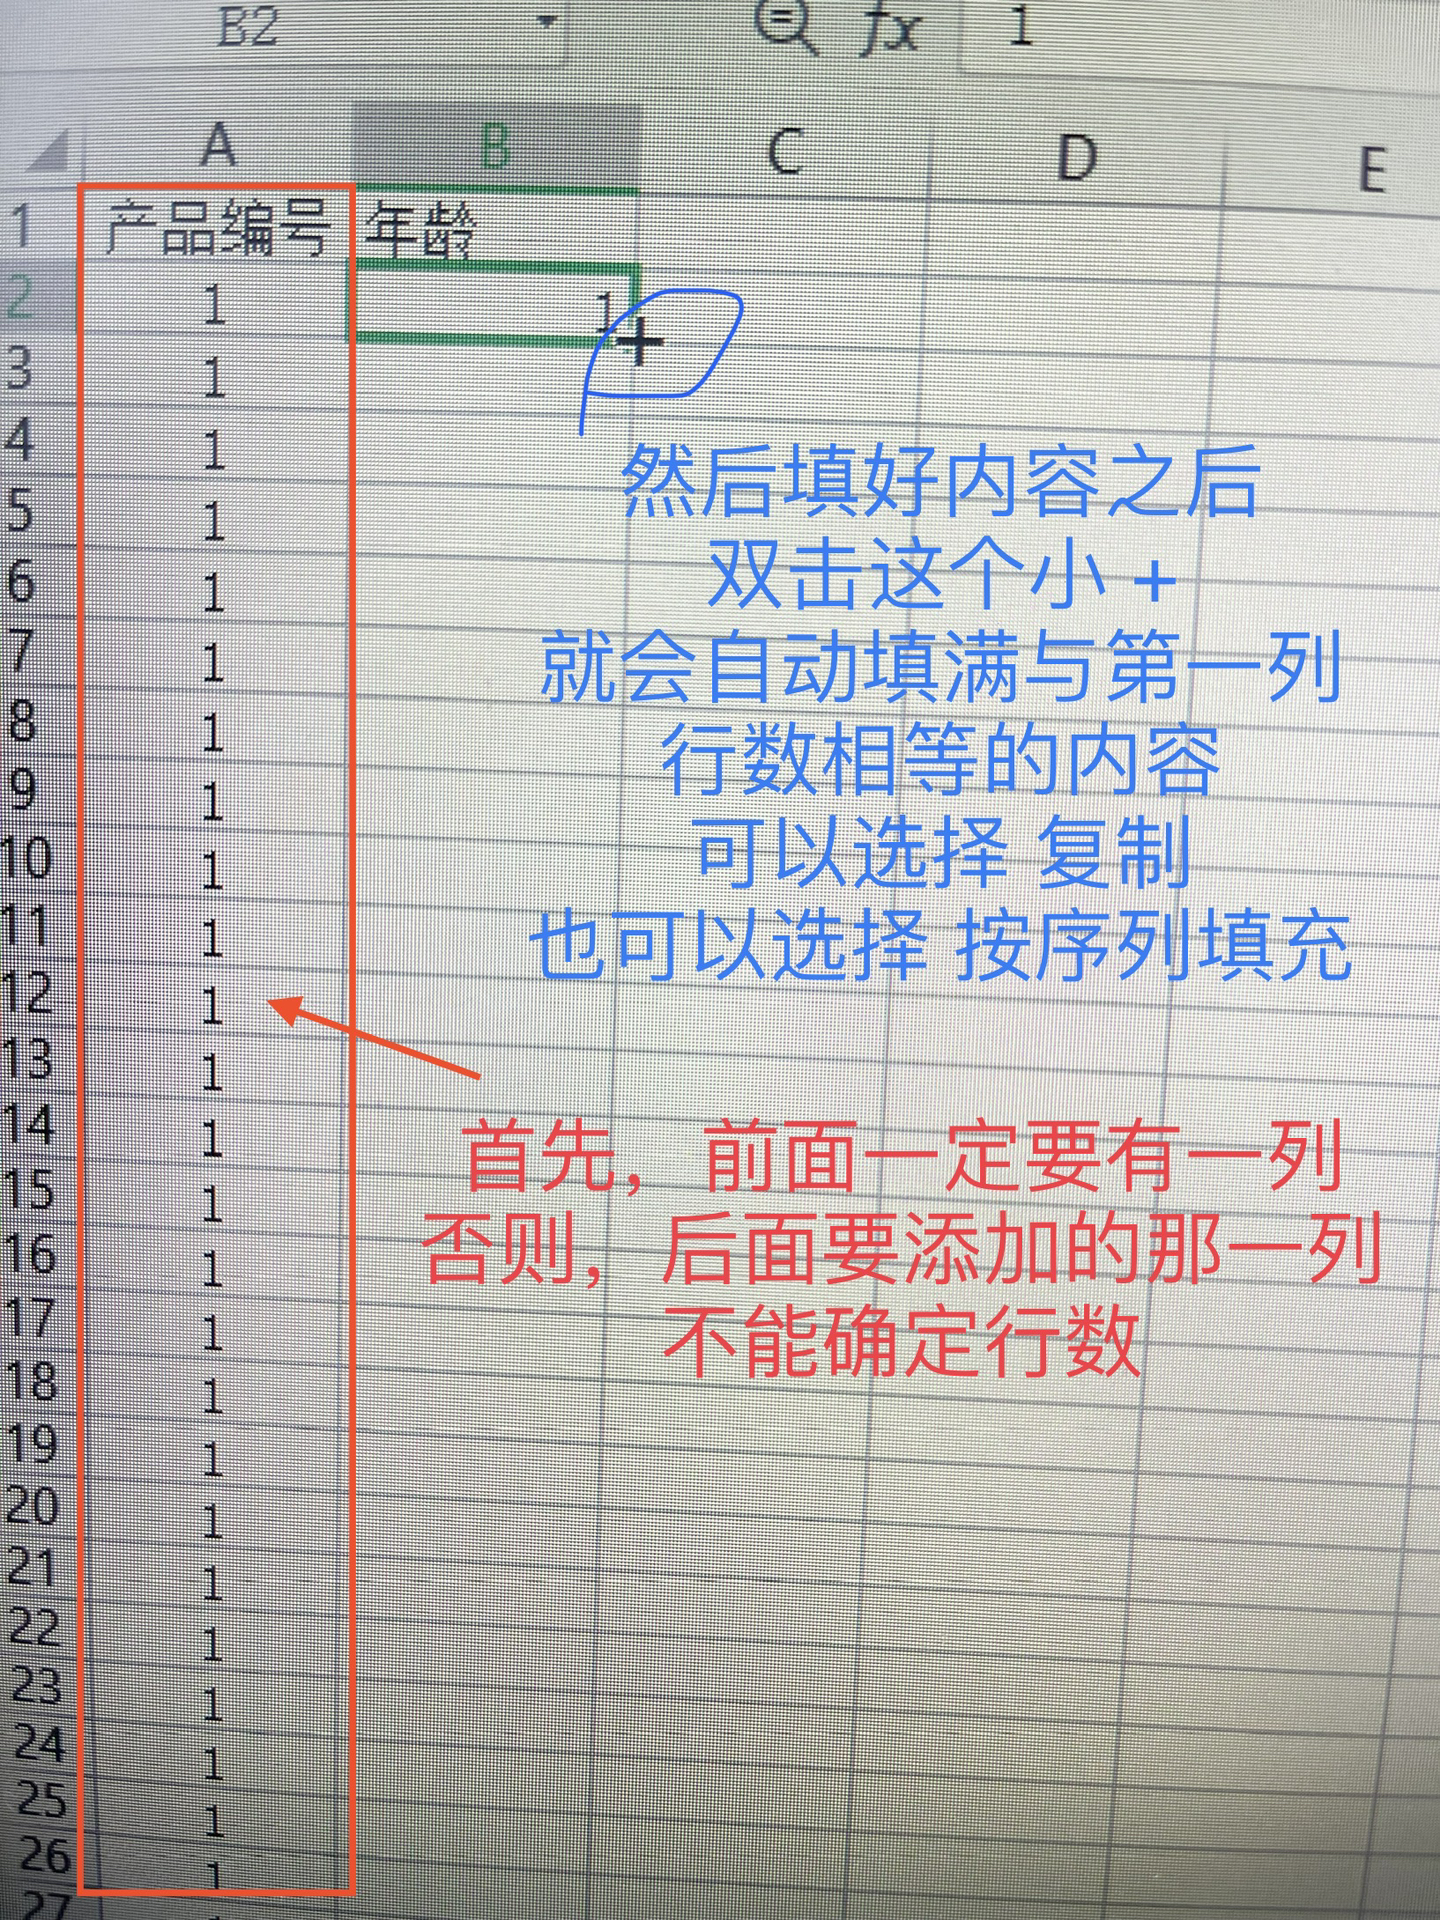 B2 fx 1
A B C D E
1 产品编号 年龄
2 1 1
3 1
4 1
然后填好内容之后
5 1
6 1
双击这个小 +
7 1
就会自动填满与第一列
8 1
行数相等的内容
9 1
10 1
可以选择 复制
11 1
也可以选择 按序列填充
12 1
13 1
14 1
首先，前面一定要有一列
15 1
16 1
否则，后面要添加的那一列
17 1
不能确定行数
18 1
19 1
20 1
21 1
22 1
23 1
24 1
25 1
26 1
27